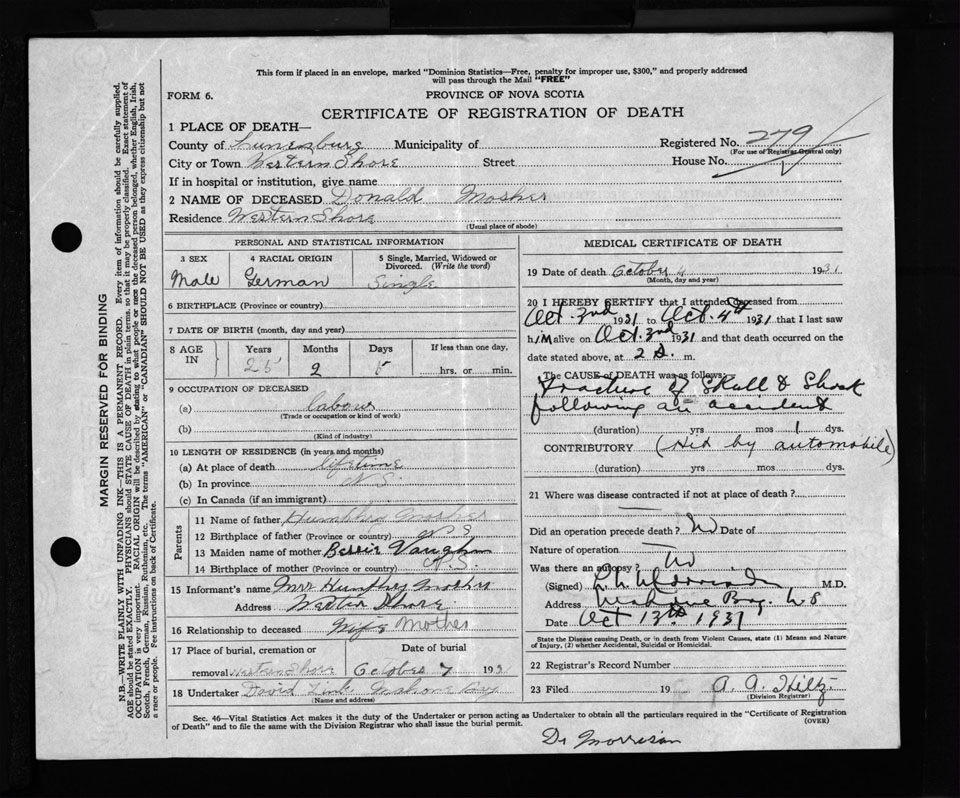 This form if placed in an envelope, marked "Dominion Statistics—Free, penalty for improper use, $300," and properly addressed
will pass through the Mail "FREE"
FORM 6.
PROVINCE OF NOVA SCOTIA
CERTIFICATE OF REGISTRATION OF DEATH
1 PLACE OF DEATH—
County of Lunenburg Municipality of Registered No. 279
(For use of Registrar General only)
City or Town Western Shore Street House No.
If in hospital or institution, give name
2 NAME OF DECEASED Donald Mosher
Residence Western Shore
(Usual place of abode)
PERSONAL AND STATISTICAL INFORMATION
3 SEX 4 RACIAL ORIGIN 5 Single, Married, Widowed or
Divorced. (Write the word)
Male German Single
6 BIRTHPLACE (Province or country)
7 DATE OF BIRTH (month, day and year)
8 AGE IN Years Months Days If less than one day,
25 2 5 hrs. or min.
9 OCCUPATION OF DECEASED
(a) labour
(Trade or occupation or kind of work)
(b)
(Kind of industry)
10 LENGTH OF RESIDENCE (in years and months)
(a) At place of death lifetime
(b) In province N S.
(c) In Canada (if an immigrant)
Parents
11 Name of father Mosher
12 Birthplace of father (Province or country) N S
13 Maiden name of mother Bessie Vaughn
14 Birthplace of mother (Province or country) N.S.
15 Informant's name Mrs Humphry Mosher
Address Western Shore
16 Relationship to deceased Wife Mother
17 Place of burial, cremation or Date of burial
removal Western Shore October 7 193
18 Undertaker David Mahone Bay
(Name and address)
MEDICAL CERTIFICATE OF DEATH
19 Date of death October 4 1931
(Month, day and year)
20 I HEREBY CERTIFY that I attended deceased from
Oct. 2nd 1931 to Oct. 4th 1931 that I last saw
h/M alive on Oct. 2nd 1931 and that death occurred on
date stated above, at 2 m.
The CAUSE of DEATH was as follows:
Fracture of Skull & Shock
following an accident
(duration) yrs mos 1 dys.
CONTRIBUTORY (Hit by automobile)
(duration) yrs mos dys.
21 Where was disease contracted if not at place of death?
Did an operation precede death? No Date of
Nature of operation
Was there an autopsy? No
(Signed) M.D.
Address Mahone Bay. N S
Date Oct 13th 1931
State the Disease causing Death, or in death from Violent Causes, state (1) Means and Nature
of Injury, (2) whether Accidental, Suicidal or Homicidal.
22 Registrar's Record Number
23 Filed 19 A. A. Hiltz.
(Division Registrar)
Sec. 46—Vital Statistics Act makes it the duty of the Undertaker or person acting as Undertaker to obtain all the particulars required in the "Certificate of Registration
of Death" and to file the same with the Division Registrar who shall issue the burial permit. (OVER)
Dr Morrison
MARGIN RESERVED FOR BINDING
N.B.—WRITE PLAINLY WITH UNFADING INK—THIS IS A PERMANENT RECORD. Every item of information should be carefully supplied.
AGE should be stated EXACTLY. PHYSICIANS should STATE CAUSE OF DEATH in plain terms, so that it may be properly classified. Exact statement of
OCCUPATION is very important. RACIAL ORIGIN will be described by stating to what people or race the deceased person belonged, whether English, Irish,
Scotch, French, German, Russian, Ruthenian, etc. The terms "AMERICAN" or "CANADIAN" SHOULD NOT BE USED as they express citizenship but not
a race or people. Fee instructions on back of Certificate.